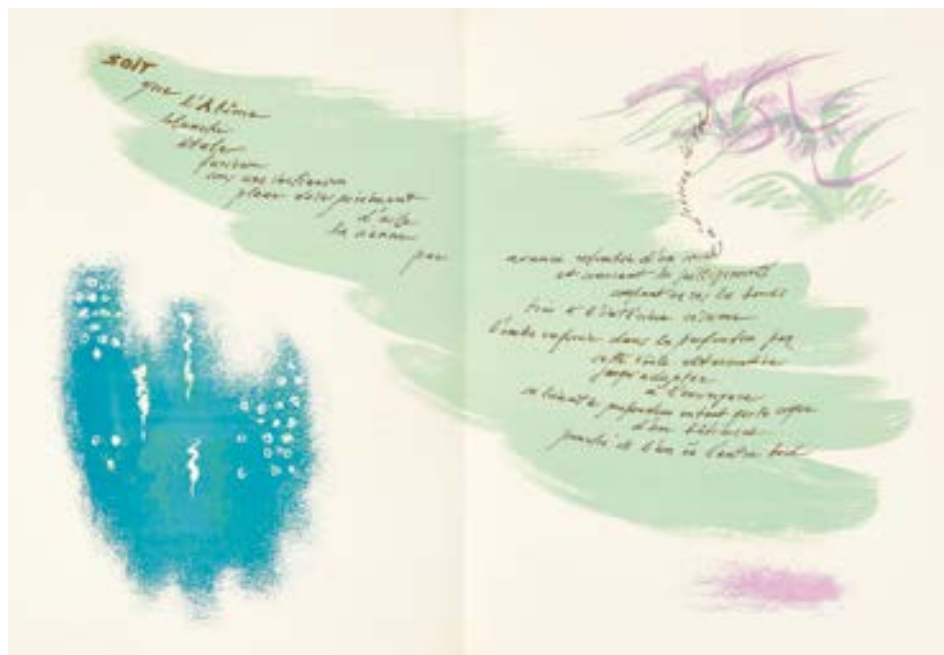 SOIT
que
l'Abîme
blanchi
étale
furieux
sous une inclinaison
plane désespérément
d'aile
la sienne
par
avance retombée d'un mal
et couvrant les jaillissements
coupant au ras les bonds
très à l'intérieur résume
l'ombre enfouie dans la profondeur par
cette voile alternative
jusqu'adapter
à l'envergure
sa béante profondeur en tant que la coque
d'un bâtiment
penché de l'un ou l'autre bord